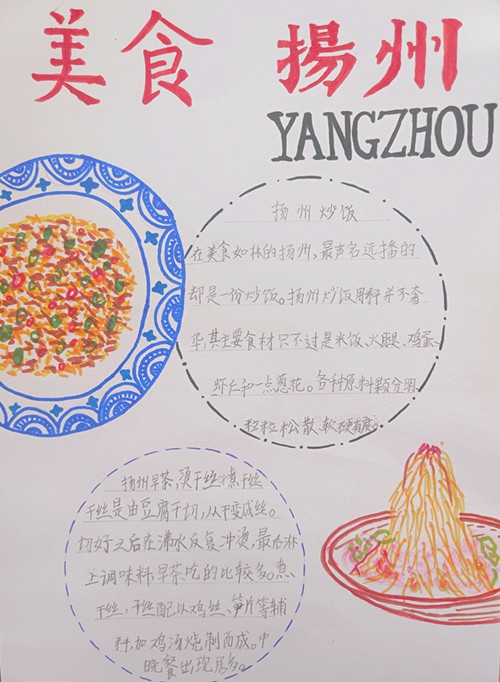 美食 揚州
YANGZHOU
扬州炒饭
在美食如林的扬州,最声名远播的
却是一份炒饭。扬州炒饭用料并不奢
华,其主要食材只不过是米饭、火腿、鸡蛋、
虾仁和一点葱花。各种原料颗分明
粒粒松散,软硬有度。
扬州早茶,烫干丝、煮干丝
干丝是由豆腐干切,从干变成丝。
切好之后在沸水反复冲烫,最后淋
上调味料早茶吃的比较多。煮
干丝,干丝配以鸡丝、笋片等辅
料,加鸡汤烧制而成。中
晚餐出现居多。